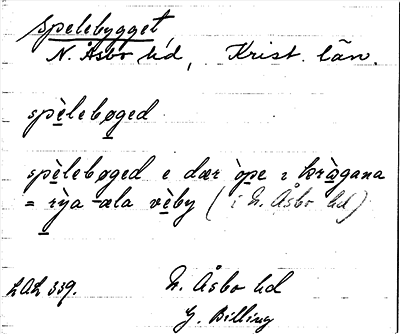 spelebygget,
N. Åsbo hd, Krist. län.
spèlebøged
spèlebøged e dær òpe ı kràgana
= rỳa æla vèby (i N. Åsbo hd)
LAL 339.
N. Åsbo hd
G. Billing